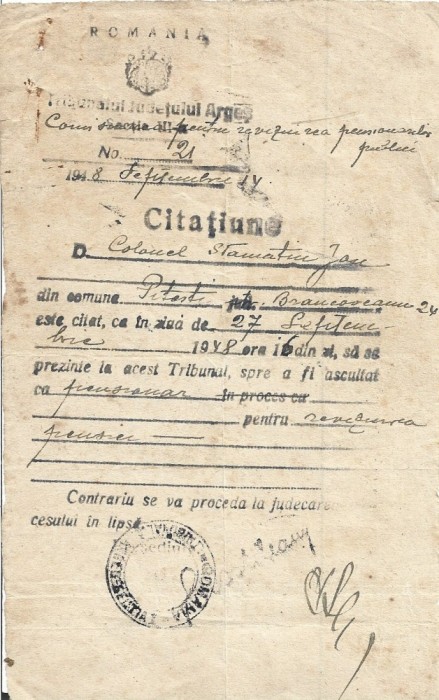 ROMANIA
Tribunalul Judeţului Argeş
Secţia III-a pentru revizuirea pensionarilor
publici
No. 21
1948 Septembrie 14
Citaţiune
D. Colonel Stamatin Jon
din comuna Piteşti str. Brancoveanu 24
este citat, ca în ziua de 27 Septem-
brie 1948 ora 16 din zi, să se
prezinte la acest Tribunal, spre a fi ascultat
ca pensionar în proces cu
pentru revizuirea
pensiei
Contrariu se va proceda la judecare
cesului în lipsă.